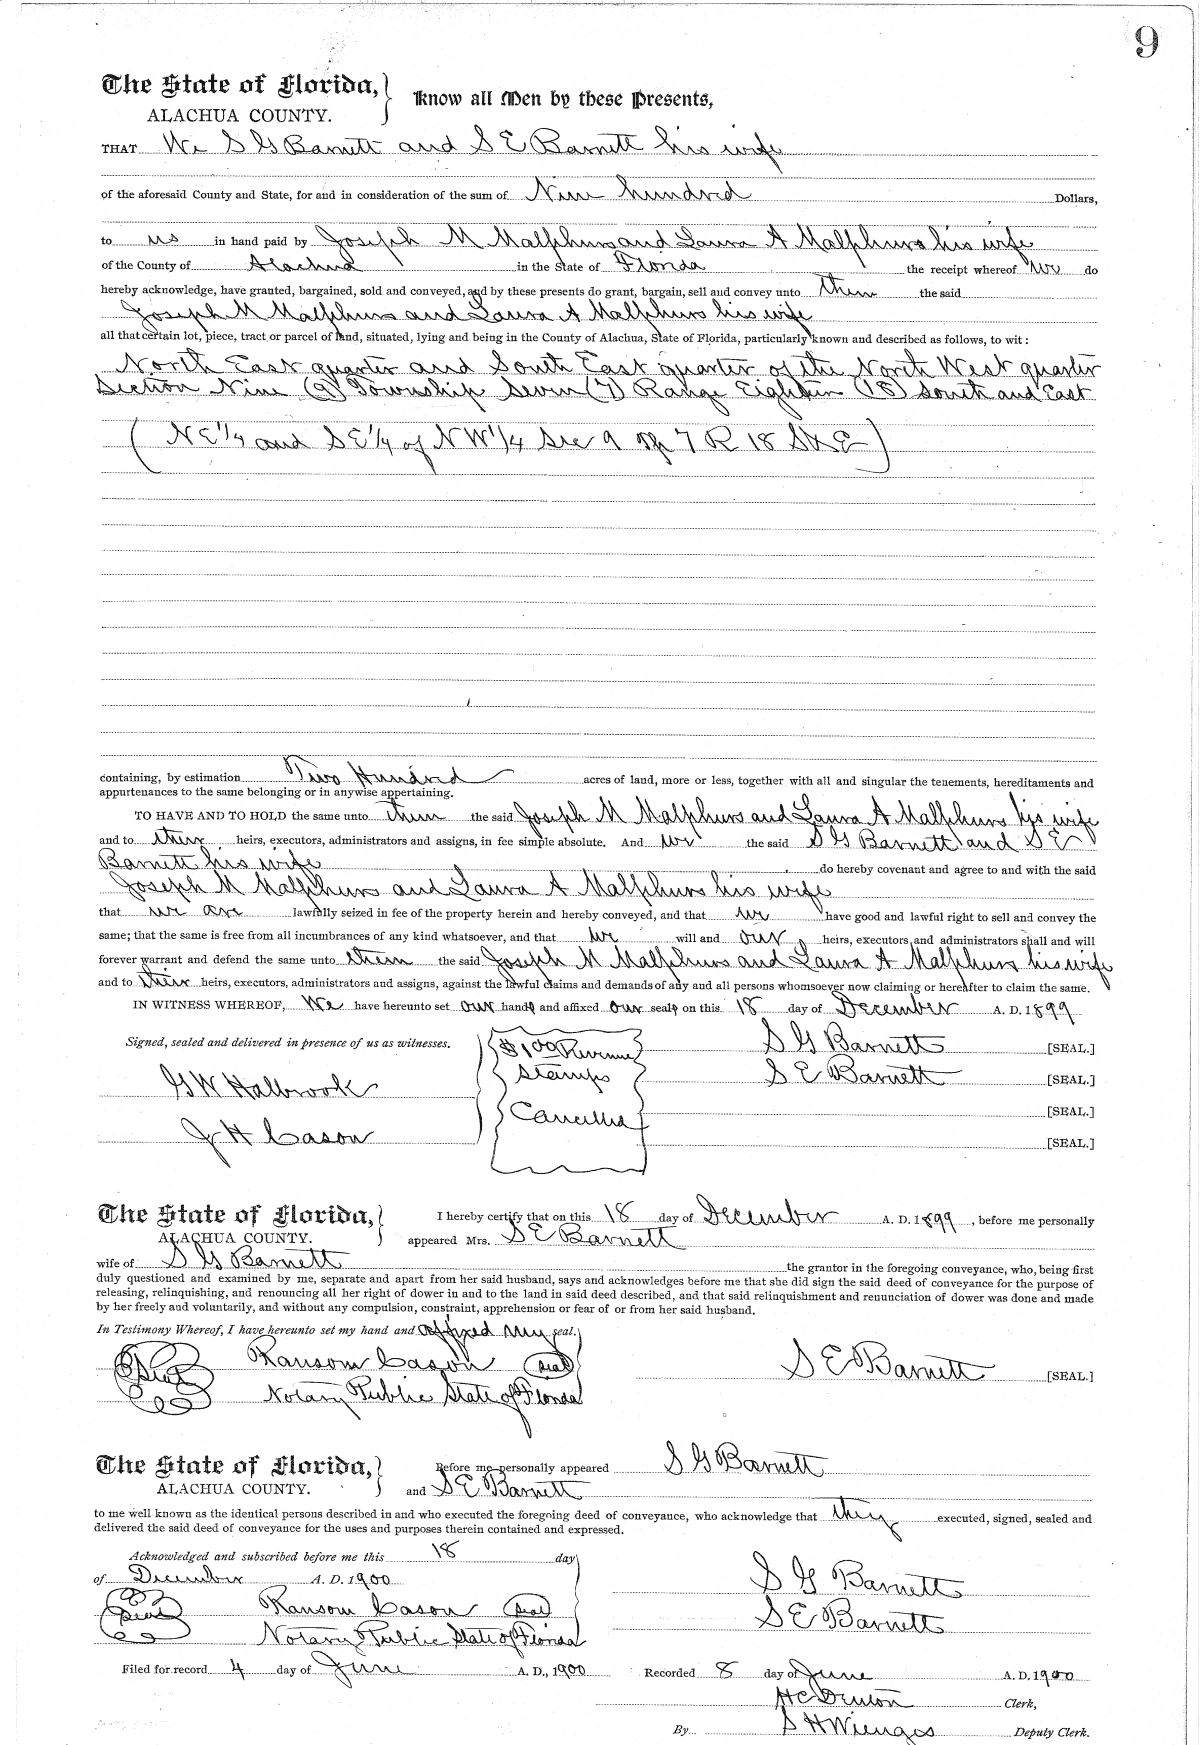 9
The State of Florida,
ALACHUA COUNTY.
Know all Men by these Presents,
THAT We S G Barnett and S E Barnett his wife
of the aforesaid County and State, for and in consideration of the sum of Nine hundred Dollars,
to us in hand paid by Joseph M Malphurs and Laura A Malphurs his wife
of the County of Alachua in the State of Florida the receipt whereof we do
hereby acknowledge, have granted, bargained, sold and conveyed, and by these presents do grant, bargain, sell and convey unto them the said
Joseph M Malphurs and Laura A Malphurs his wife
all that certain lot, piece, tract or parcel of land, situated, lying and being in the County of Alachua, State of Florida, particularly known and described as follows, to wit:
North East quarter and South East quarter of the North West quarter
Section Nine (9) Township Seven (7) Range Eighteen (18) South and East
(NE 1/4 and SE 1/4 of NW 1/4 Sec 9 Tp 7 R 18 S & E)
containing, by estimation Two Hundred acres of land, more or less, together with all and singular the tenements, hereditaments and
appurtenances to the same belonging or in anywise appertaining.
TO HAVE AND TO HOLD the same unto them the said Joseph M Malphurs and Laura A Malphurs his wife
and to their heirs, executors, administrators and assigns, in fee simple absolute. And we the said S G Barnett and S E
Barnett his wife do hereby covenant and agree to and with the said
Joseph M Malphurs and Laura A Malphurs his wife
that we are lawfully seized in fee of the property herein and hereby conveyed, and that we have good and lawful right to sell and convey the
same; that the same is free from all incumbrances of any kind whatsoever, and that we will and our heirs, executors and administrators shall and will
forever warrant and defend the same unto them the said Joseph M Malphurs and Laura A Malphurs his wife
and to their heirs, executors, administrators and assigns, against the lawful claims and demands of any and all persons whomsoever now claiming or hereafter to claim the same.
IN WITNESS WHEREOF, We have hereunto set our hands and affixed our seals on this 18 day of December A. D. 1899
Signed, sealed and delivered in presence of us as witnesses.
G W Halbrook
J H Cason
$1.00 Revenue
Stamps
Cancelled
S G Barnett [SEAL.]
S E Barnett [SEAL.]
[SEAL.]
[SEAL.]
The State of Florida,
ALACHUA COUNTY.
I hereby certify that on this 18 day of December A. D. 1899, before me personally
appeared Mrs. S E Barnett
wife of S G Barnett the grantor in the foregoing conveyance, who, being first
duly questioned and examined by me, separate and apart from her said husband, says and acknowledges before me that she did sign the said deed of conveyance for the purpose of
releasing, relinquishing, and renouncing all her right of dower in and to the land in said deed described, and that said relinquishment and renunciation of dower was done and made
by her freely aud voluntarily, and without any compulsion, constraint, apprehension or fear of or from her said husband.
In Testimony Whereof, I have hereunto set my hand and affixed my seal.
Seal Ransom Cason Seal
Notary Public State of Florida
S E Barnett [SEAL.]
The State of Florida,
ALACHUA COUNTY.
Before me personally appeared S G Barnett
and S E Barnett
to me well known as the identical persons described in and who executed the foregoing deed of conveyance, who acknowledge that they executed, signed, sealed and
delivered the said deed of conveyance for the uses and purposes therein contained and expressed.
Acknowledged and subscribed before me this 18 day
of December A. D. 1900
Seal Ransom Cason Seal
Notary Public State of Florida
S G Barnett
S E Barnett
Filed for record 4 day of June A. D., 1900
Recorded 8 day of June A. D. 1900
H C Denton Clerk,
By S H Wienges Deputy Clerk.